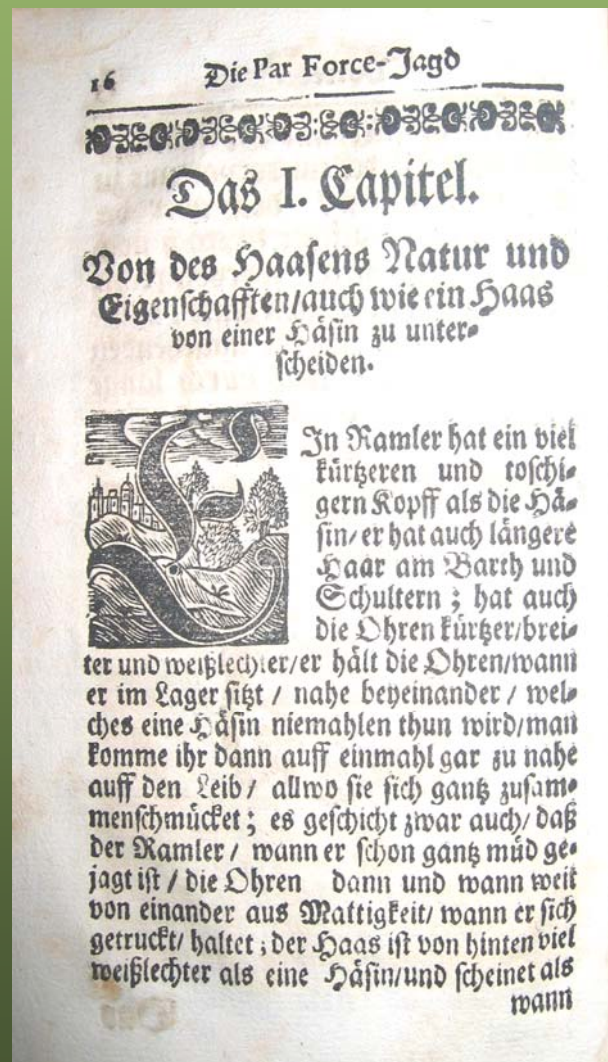 16 Die Par Force-Jagd
Das I. Capitel.
Von des Haasens Natur und
Eigenschafften/auch wie ein Haas
von einer Häsin zu unter-
scheiden.
EIn Ramler hat ein viel
kürtzeren und toschi-
gern Kopff als die Hä-
sin/er hat auch längere
Haar am Barth und
Schultern; hat auch
die Ohren kürtzer/brei-
ter und weißlechter/er hält die Ohren/wann
er im Lager sitzt / nahe beyeinander / wel-
ches eine Häsin niemahlen thun wird/man
komme ihr dann auff einmahl gar zu nahe
auff den Leib/ allwo sie sich gantz zusam-
menschmücket; es geschicht zwar auch/ daß
der Ramler / wann er schon gantz müd ge-
jagt ist / die Ohren dann und wann weit
von einander aus Mattigkeit/ wann er sich
getruckt/ haltet; der Haas ist von hinten viel
weißlechter als eine Häsin/und scheinet als
wann